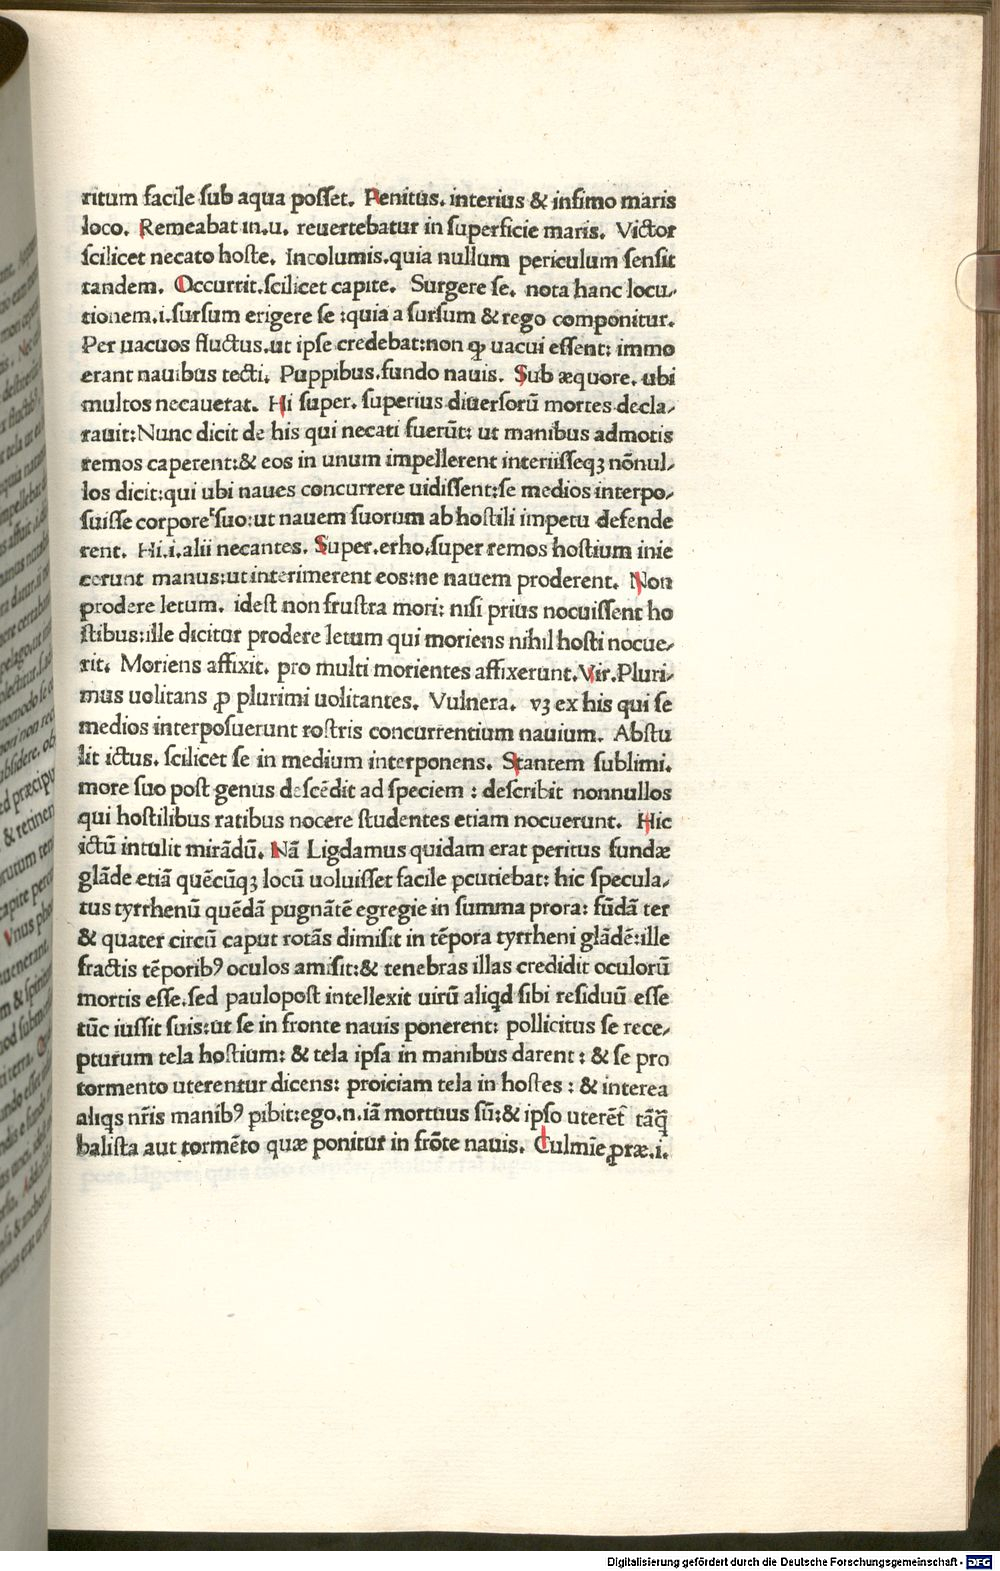 ritum facile ſub aqua poſſet. Penitus. interius & infimo maris
loco. Remeabat in.u. reuertebatur in ſuperficie maris. Victor
ſcilicet necato hoſte. Incolumis.quia nullum periculum ſenſit
tandem. Occurrit.ſcilicet capite. Surgere ſe. nota hanc locu-
tionem.i.ſurſum erigere ſe :quia a ſurſum & rego componitur.
Per uacuos fluctus.ut ipſe credebat:non ꝙ uacui eſſent: immo
erant nauibus tecti. Puppibus.fundo nauis. Sub æquore. ubi
multos necauerat. Hi ſuper. ſuperius diuerſorū mortes decla-
rauit:Nunc dicit de his qui necati fuerūt: ut manibus admotis
remos caperent:& eos in unum impellerent interiiſſeqꝫ nōnul-
los dicit:qui ubi naues concurrere uidiſſent:ſe medios interpo-
ſuiſſe corpore ſuo:ut nauem ſuorum ab hoſtili impetu defende
rent. Hi.i.alii necantes. Super.erho.ſuper remos hoſtium inie
cerunt manus:ut interimerent eos:ne nauem proderent. Non
prodere letum. ideſt non fruſtra mori: niſi prius nocuiſſent ho
ſtibus:ille dicitur prodere letum qui moriens nihil hoſti nocue-
rit. Moriens affixit. pro multi morientes affixerunt.Vir.Pluri-
mus uolitans ꝓ plurimi uolitantes. Vulnera. vꝫ ex his qui ſe
medios interpoſuerunt roſtris concurrentium nauium. Abſtu
lit ictus. ſcilicet ſe in medium interponens. Stantem ſublimi.
more ſuo poſt genus deſcēdit ad ſpeciem : deſcribit nonnullos
qui hoſtilibus ratibus nocere ſtudentes etiam nocuerunt. Hic
ictū intulit mirādū. Nā Ligdamus quidam erat peritus fundæ
glāde etiā quēcūqꝫ locū uoluiſſet facile ꝑcutiebat: hic ſpecula-
tus tyrrhenū quēdā pugnātē egregie in ſumma prora: fūdā ter
& quater circū caput rotās dimiſit in tēpora tyrrheni glādē:ille
fractis tēporibꝰ oculos amiſit:& tenebras illas credidit oculorū
mortis eſſe.ſed paulopoſt intellexit uirū aliqd ſibi reſiduū eſſe
tūc iuſſit ſuis:ut ſe in fronte nauis ponerent: pollicitus ſe rece-
pturum tela hoſtium: & tela ipſa in manibus darent : & ſe pro
tormento uterentur dicens: proiciam tela in hoſtes : & interea
aliqs nr̄is manibꝰ ꝑibit:ego.n.iā mortuus ſū:& ipſo uterēt̄ tāꝗ̄
baliſta aut tormēto quæ ponitur in frōte nauis. Culmīe ꝓræ.i.
Digitalisierung gefördert durch die Deutsche Forschungsgemeinschaft - DFG